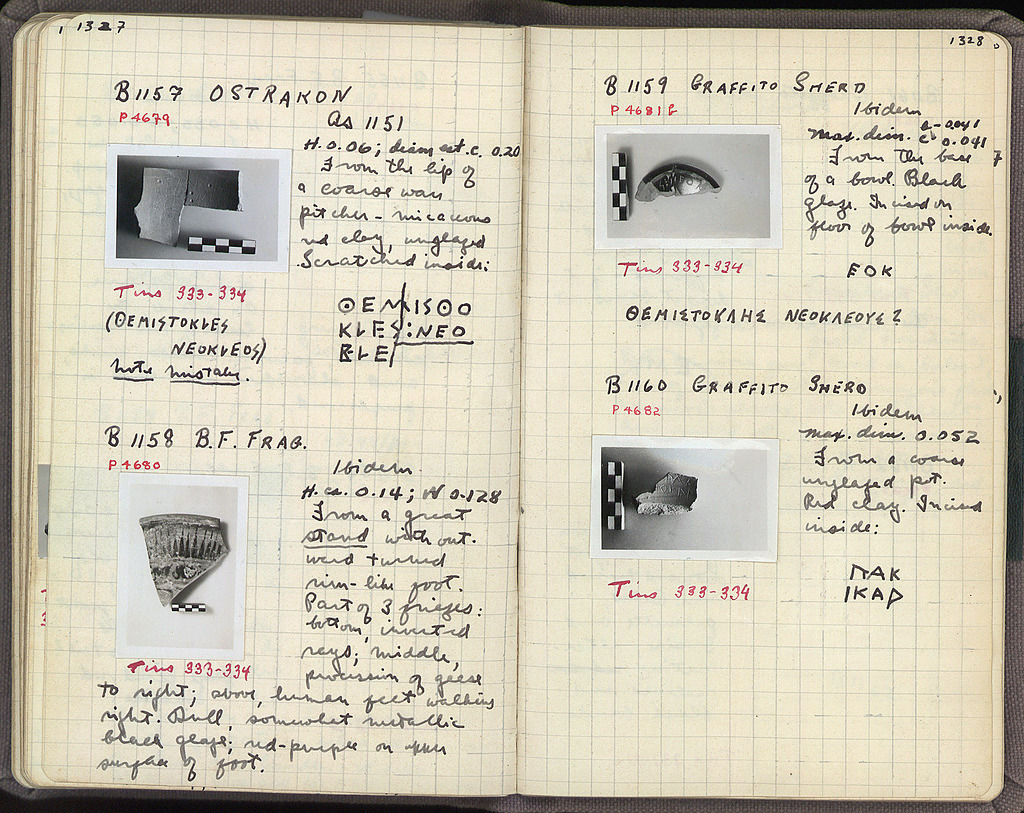 1327
B 1157 OSTRAKON
P 4679
As 1151
H. 0.06; diam est. c. 0.20
From the lip of
a coarse ware
pitcher - micaceous
red clay, unglazed
Scratched inside:
Tins 333-334
(ΘEMIΣTOKLES
NEOKLEOS)
note mistake.
ΘEMISΘO
KLES:NEO
KLE
B 1158 B.F. FRAG.
P 4680
Ibidem
H. ca. 0.14; W 0.128
From a great
stand with out-
ward turned
rim-like foot.
Part of 3 friezes:
bottom, inverted
rays; middle,
procession of geese
to right; above, human feet walking
right. Dull, somewhat metallic
black glaze; red-purple on upper
surface of foot.
Tins 333-334
1328
B 1159 GRAFFITO SHERD
P 4681
Ibidem
max. dim. 0.041
From the base
of a bowl. Black
glaze. Incised on
floor of bowl inside.
Tins 333-334
EOK
ΘΕΜΙΣΤΟΚΛΗΣ ΝΕΟΚΛΕΟΥΣ?
B 1160 GRAFFITO SHERD
P 4682
Ibidem
max. dim. 0.052
From a coarse
unglazed pot.
Red clay. Incised
inside:
Tins 333-334
ΠAK
IKAP